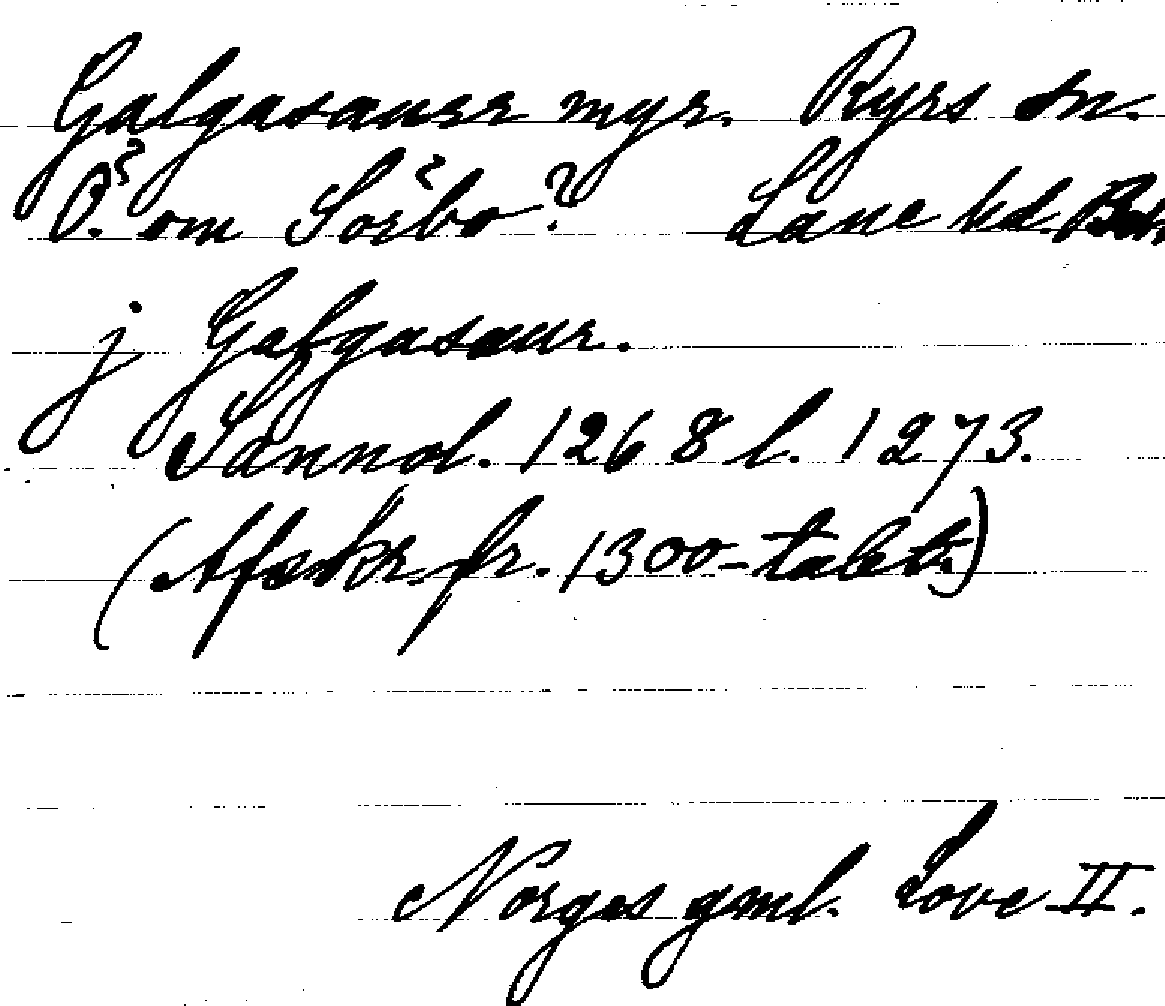 Galgasaurr myr. Ryrs sn.
Ö. om Sörbo? Lane hd.
j Galgasaur.
Sannol. 1268 l. 1273.
(Afskr. fr. 1300-talet.)
Norges gml. Love II.